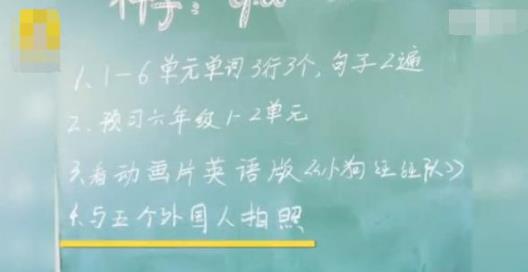 1、1-6单元单词3行3个,句子2遍
2、预习六年级1-2单元
3、看动画片英语版《小狗汪汪队》
4、与五个外国人拍照